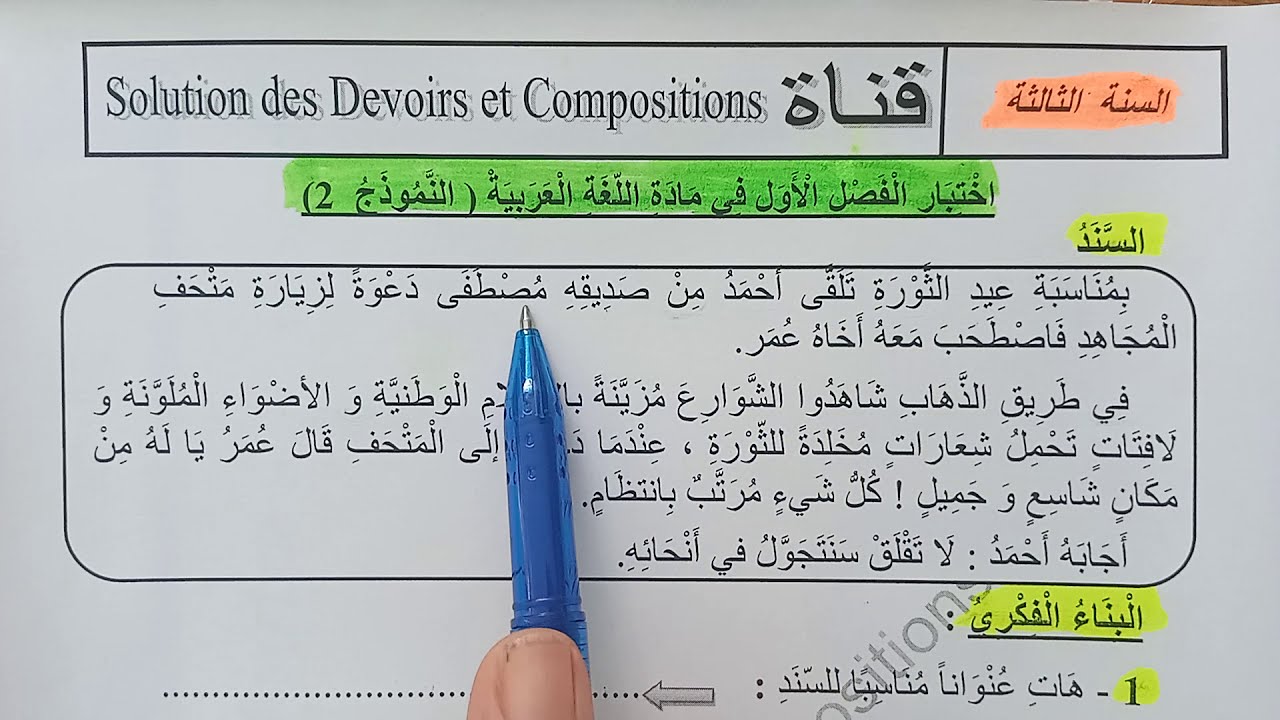 السنة الثالثة
قناة Solution des Devoirs et Compositions
اخْتِبَار الْفَصْل الْأَوَل فِي مَادَةِ اللّغَةِ الْعَرَبِيَةْ ( النَّمُوذَجُ 2)
السَّنَدُ
بِمُنَاسَبَةِ عِيدِ الثَّوْرَةِ تَلَقَّى أَحْمَدُ مِنْ صَدِيقِهِ مُصْطَفَى دَعْوَةً لِزِيَارَةِ مَتْحَفِ
الْمُجَاهِدِ فَاصْطَحَبَ مَعَهُ أَخَاهُ عُمَر.
فِي طَرِيقِ الذَّهَابِ شَاهَدُوا الشَّوَارِعَ مُزَيَّنَةً الْوَطَنيَّةِ وَ الأضْوَاءِ الْمُلَوَّنَةِ وَ
لَافِتَاتٍ تَحْمِلُ شِعَارَاتٍ مُخَلِدَةً للثّوْرَةِ ، عِنْدَمَا إلَى الْمَتْحَفِ قَالَ عُمَرُ يَا لَهُ مِنْ
مَكَانٍ شَاسِعٍ وَ جَمِيلٍ ! كُلُّ شَيءٍ مُرَتَّبٌ بِانتظَامٍ.
أَجَابَهُ أَحْمَدُ : لَا تَقْلَقْ سَنَتَجَوَّلُ في أَنْحَائِهِ.
الْبِنَاءُ الْفِكْرِيُ :
1 - هَاتِ عُنْوَاناً مُنَاسِبًا للسّنَدِ :